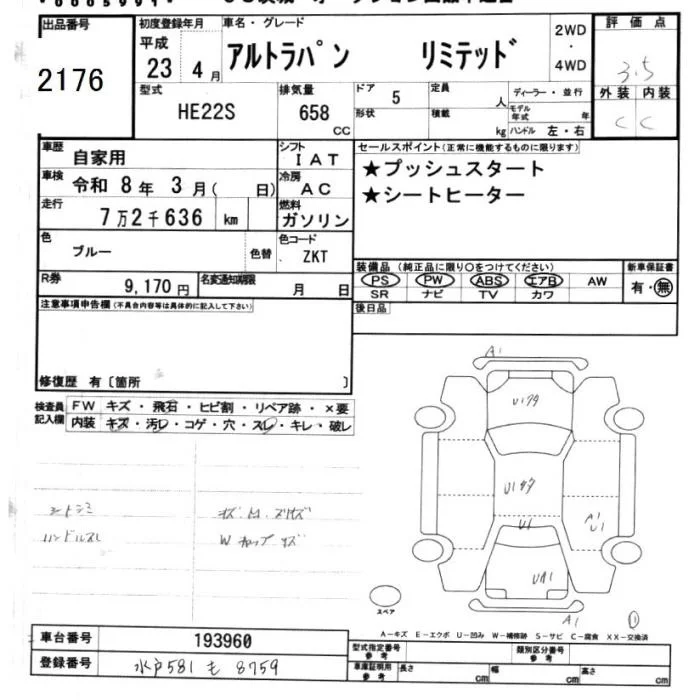 出品番号 初度登録年月 車名・グレード 2WD 評価点
2176 平成 23 年 4月 アルトラパン リミテッド ・ 4WD 3.5
型式 HE22S 排気量 658 CC ドア 5 定員 人 ディーラー・並行 外装 内装
形状 積載 kg モデル年式 年 ハンドル 左・右 C C
車歴 自家用 シフト IAT セールスポイント(正常に機能するものに限ります)
車検 令和 8年 3月( 日) 冷房 AC ★プッシュスタート
走行 7万2千636 km 燃料 ガソリン ★シートヒーター
色 ブルー 色替 色コード ZKT
装備品 (純正品に限り○をつけてください) 新車保証書
R券 9,170円 名変通知期限 月 日 PS PW ABS エアB AW 有・無
SR ナビ TV カワ
注意事項申告欄(不具合内容等は具体的に記入して下さい) 後日品
修復歴 有〔箇所 〕
検査員記入欄 FW キズ・飛石・ヒビ割・リペア跡・×要
内装 キズ・汚レ・コゲ・穴・スレ・キレ・破レ
A1
U1
U1
A1
スペア
A1
A-キズ E-エクボ U-凹み W-補修跡 S-サビ C-腐食 XX-交換済
車台番号 193960 型式指定番号 参考 類別区分番号 参考
登録番号 水戸581 も 8759 車庫証明用 参考 長さ cm 幅 cm 高さ cm